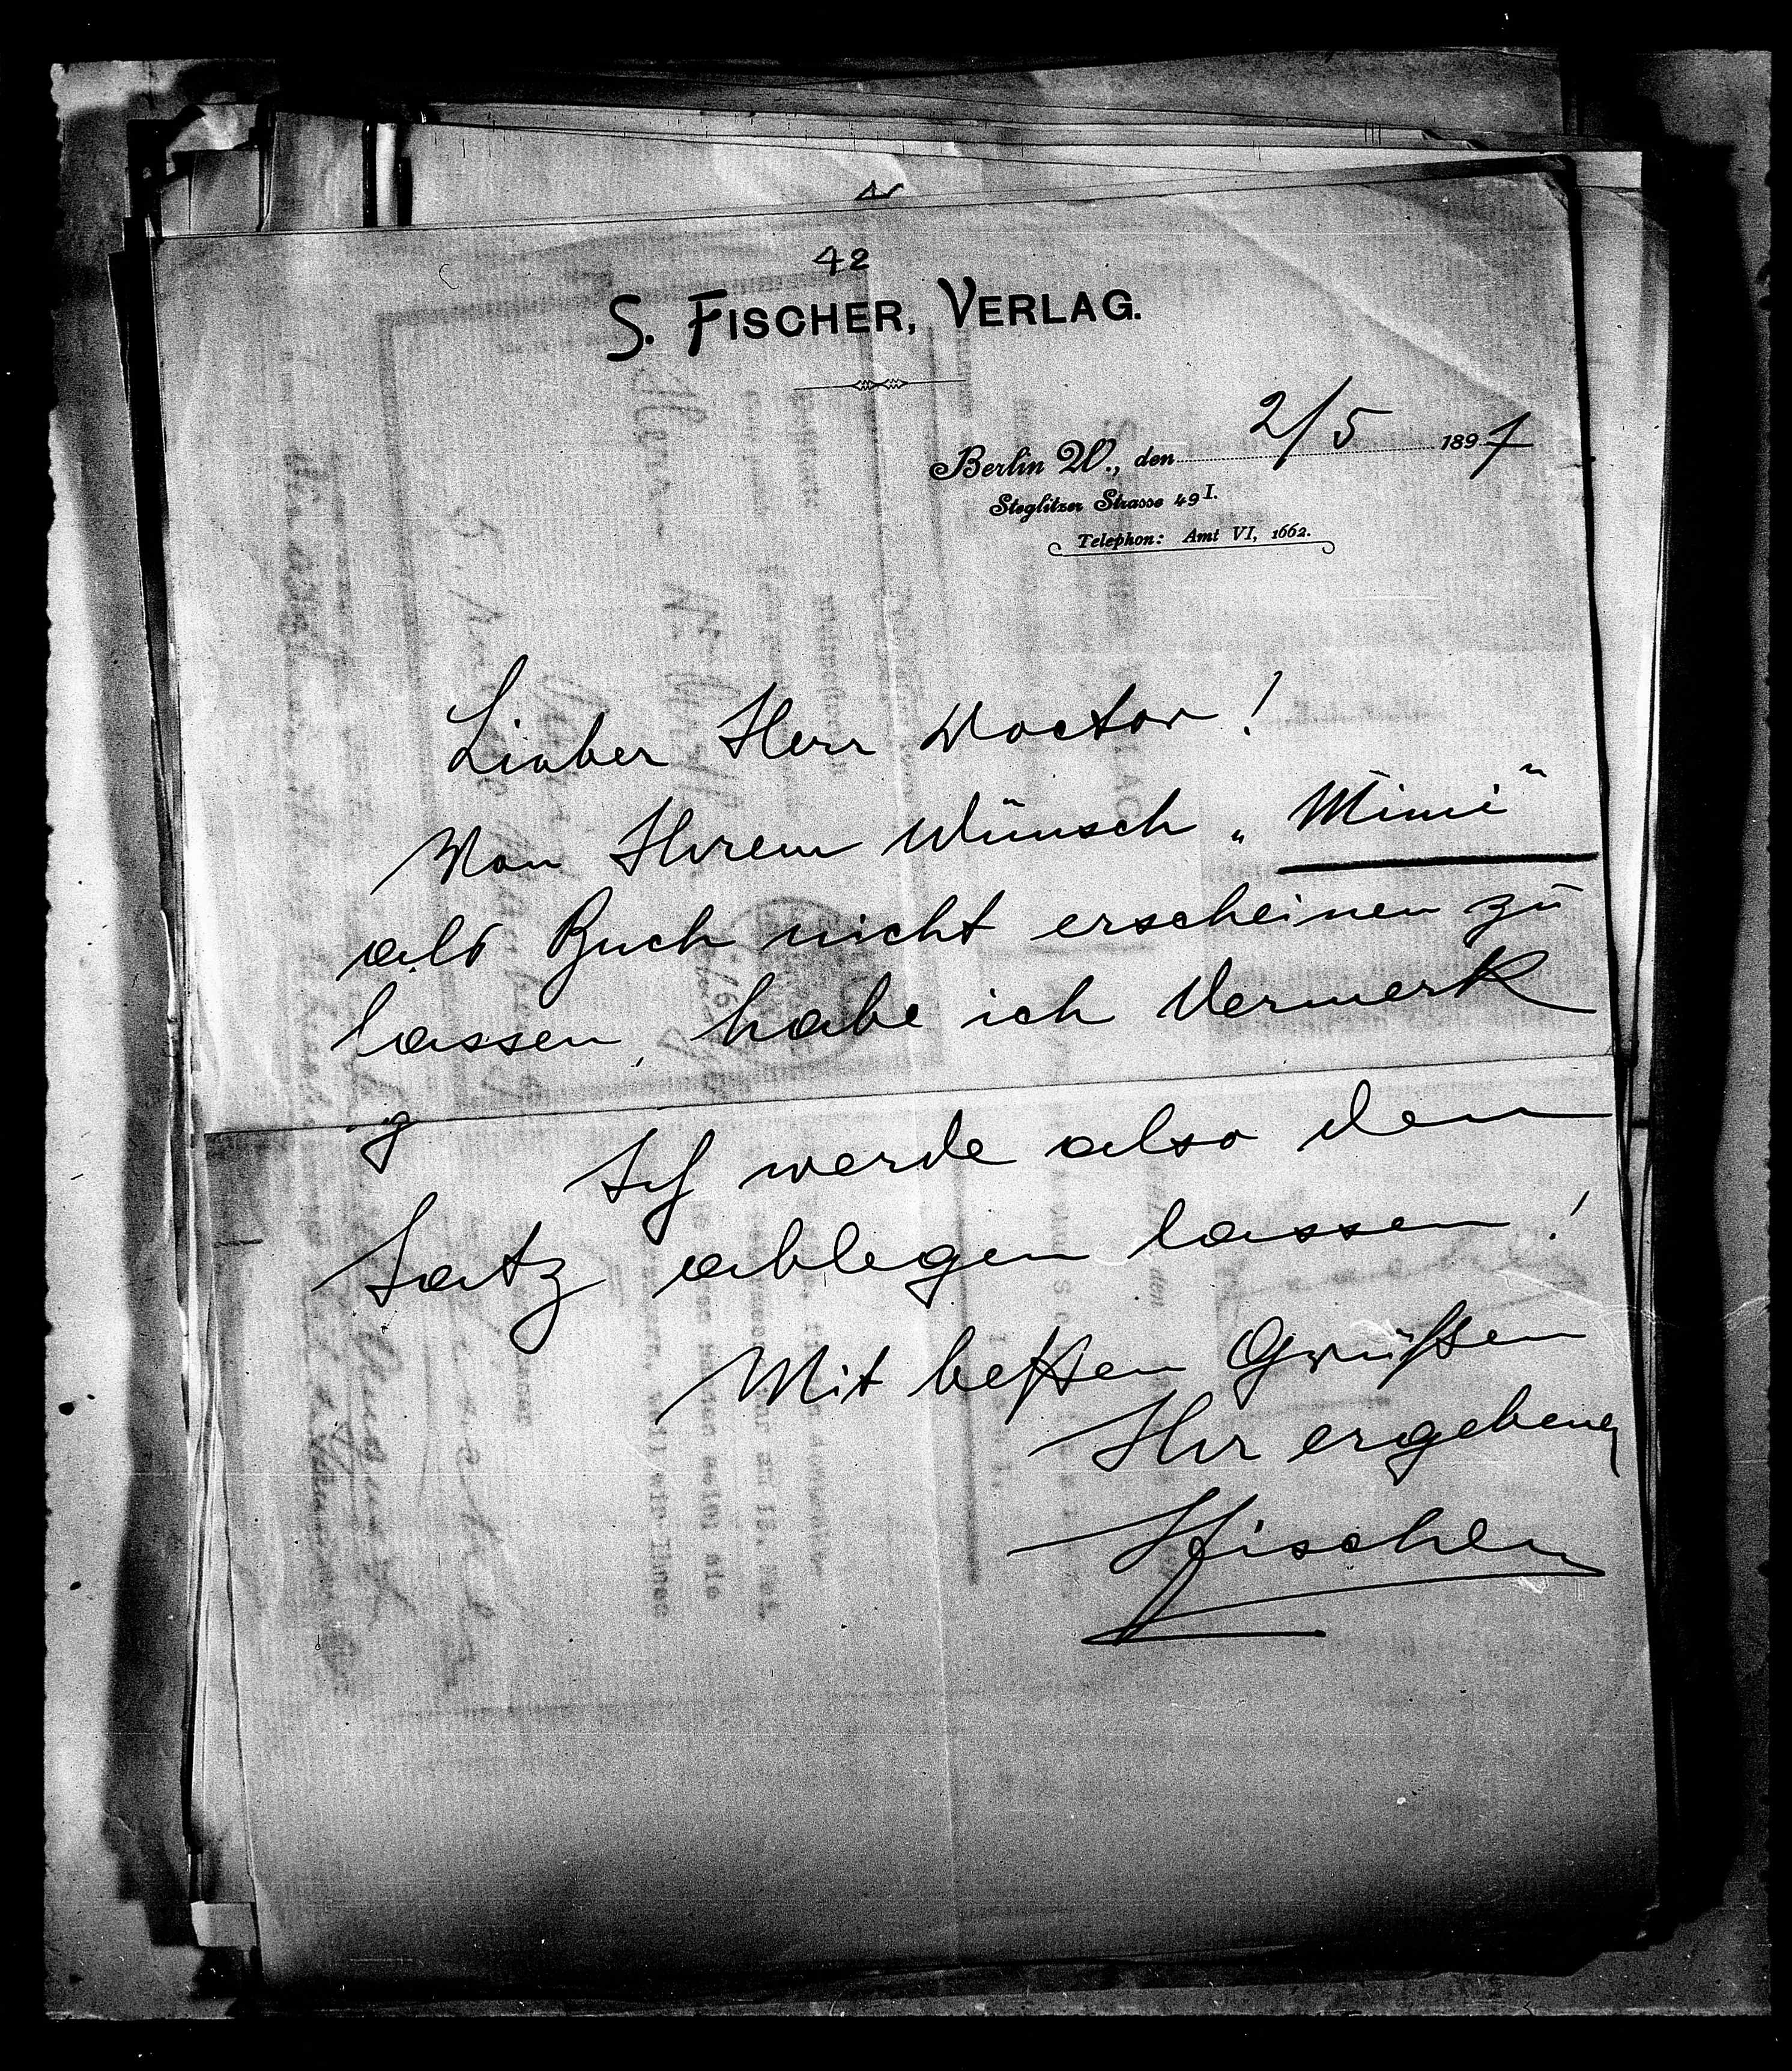 42
S. FISCHER, VERLAG.
Berlin W., den 2/5 1897
Steglitzer Strasse 49 I.
Telephon: Amt VI, 1662.
Lieber Herr Doctor!
Von Ihrem Wunsch „Mimi"
als Buch nicht erscheinen zu
lassen, habe ich Vermerk
g
Ich werde also den
Satz ablegen lassen!
Mit besten Grüßen
Ihr ergebener
SFischer